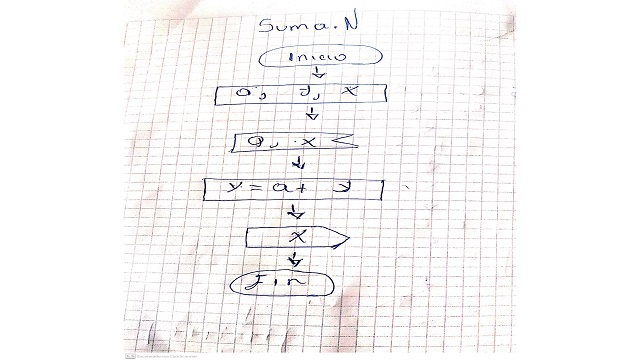 Suma.N
Inicio
a, y, x
a, x
y = a + y
x
Fin